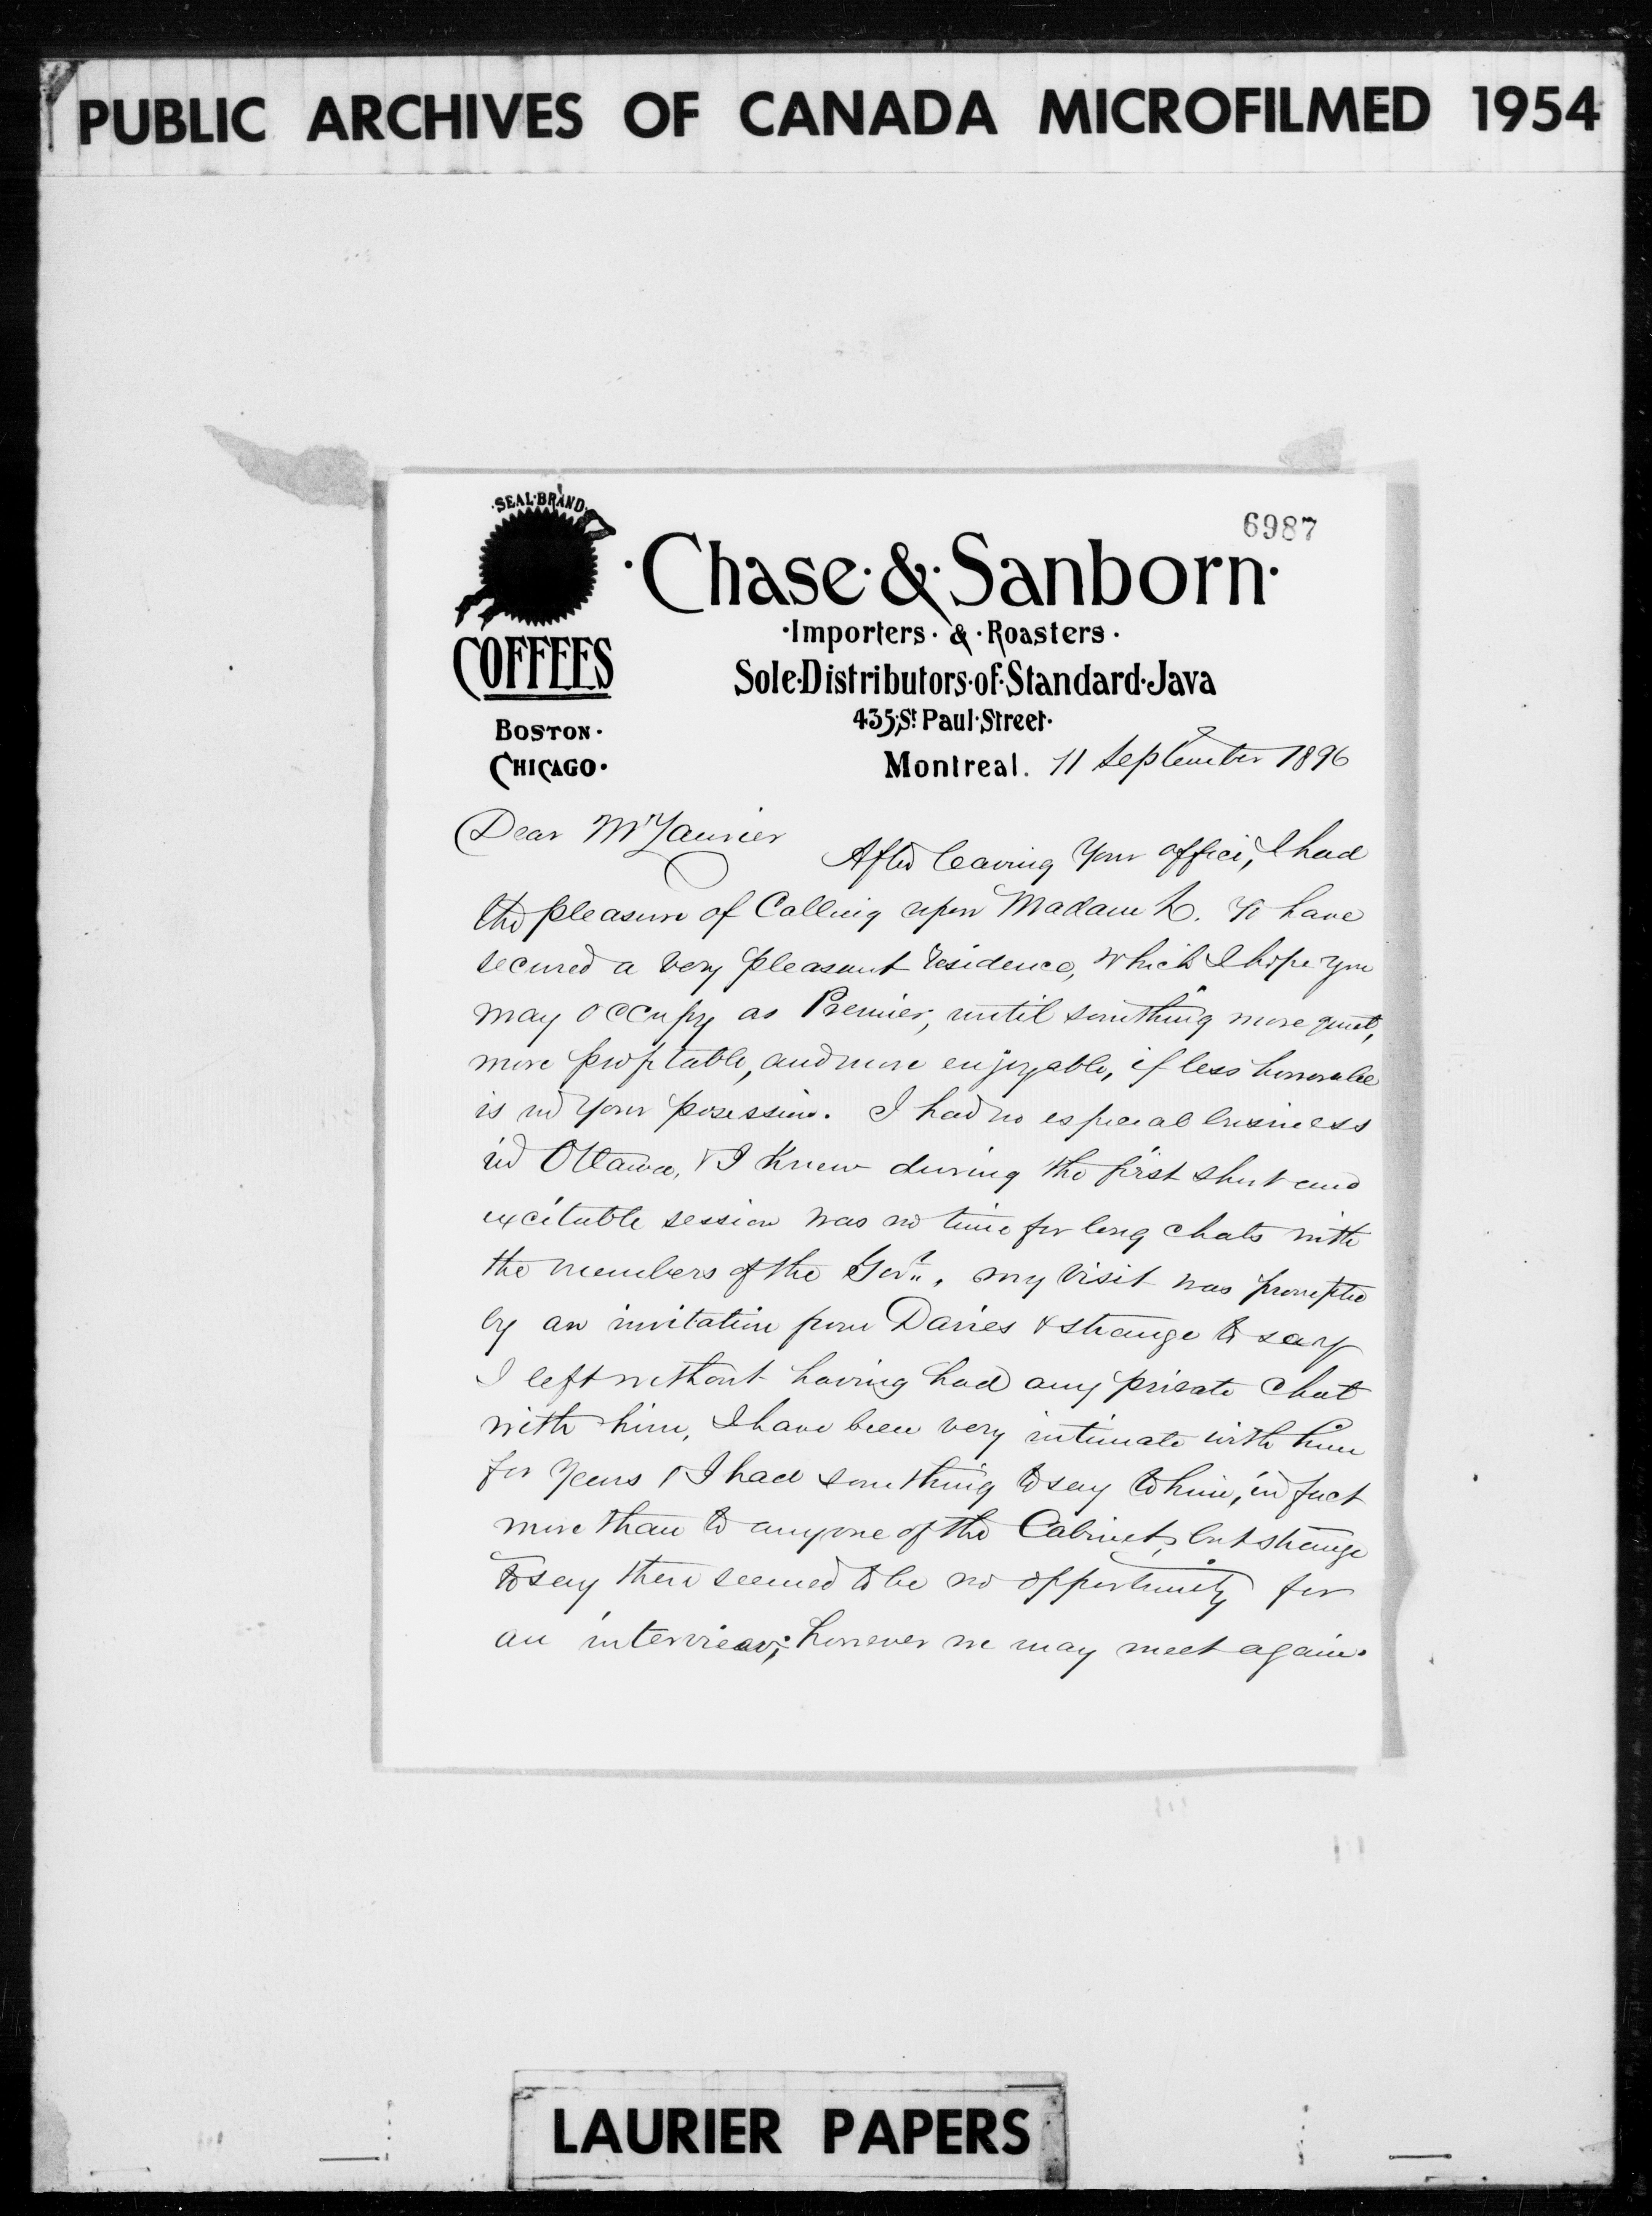 PUBLIC ARCHIVES OF CANADA MICROFILMED 1954
6987
·SEAL·BRAND·
COFFEES
BOSTON·
CHICAGO·
·Chase·&·Sanborn·
·Importers·&·Roasters·
Sole·Distributors·of·Standard·Java
435·St Paul·Street·
Montreal. 11 September 1896
Dear Mr Laurier
After leaving your office, I had
the pleasure of Calling upon Madam L. have
secured a very pleasant residence, which I hope you
may occupy as Premier, until something more quiet,
more profitable, and more enjoyable, if less honorable
is in your possession. I had no especial business
in Ottawa, & I knew during the first short and
excitable session was no time for long chats with
the members of the Govt. my visit was prompted
by an invitation from Davies & strange to say
I left without having had any private chat
with him, I have been very intimate with him
for years & I had something to say to him, in fact
more than to anyone of the Cabinet, but strange
to say there seemed to be no opportunity for
an interview; however we may meet again.
LAURIER PAPERS